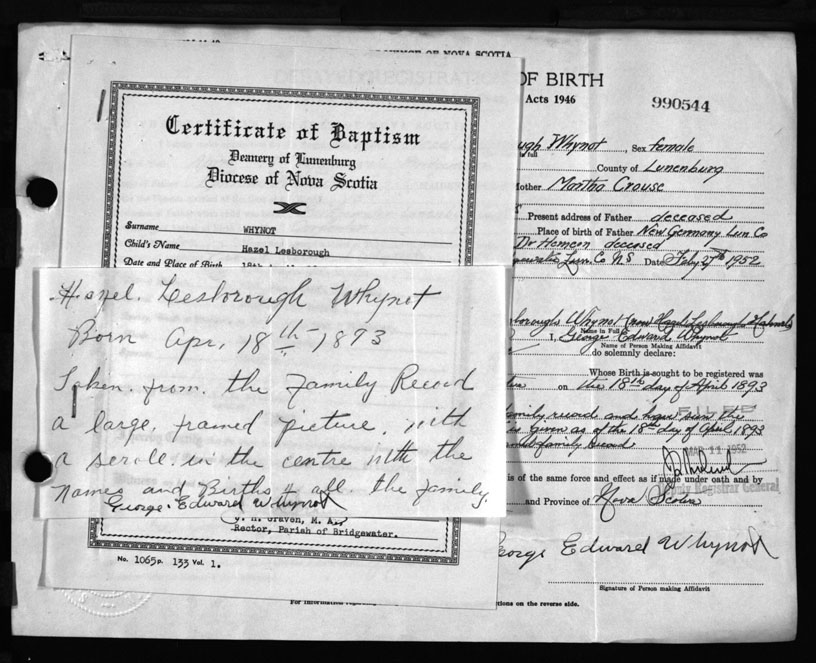 OF NOVA SCOTIA
OF BIRTH
Acts 1946
990544
Certificate of Baptism
Deanery of Lunenburg
Diocese of Nova Scotia
Surname WHYNOT
Child's Name Hazel Lesborough
Date and Place of Birth
Hazel. Lesborough Whynot
Born Apr, 18th 1893
Taken. from. the Family Record
a large, framed picture, with
a scrole. in the centre with the
names and Births of all. the family.
George Edward Whynot
J. H. Graven, M. A.,
Rector, Parish of Bridgewater.
No. 1065p. 133 Vol. 1.
Whynot, Sex female
in full
County of Lunenburg
Mother Martha Crouse
Present address of Father deceased
Place of birth of Father New Germany Lun Co
Dr deceased
Lun. Co N.S Date Feby 27th 1952
Whynot (now Hazel Lesborough
Name in Full
I, George Edward Whynot
Name of Person Making Affidavit
do solemnly declare:
Whose Birth is sought to be registered was
on the 18th day of April 1893
family record and have seen the
is given as of the 18th day of April 1893
family record
MAR 11 1952
is of the same force and effect as if made under oath and by
Registrar General
and Province of Nova Scotia
George Edward Whynot
Signature of Person making Affidavit
For information
on the reverse side.